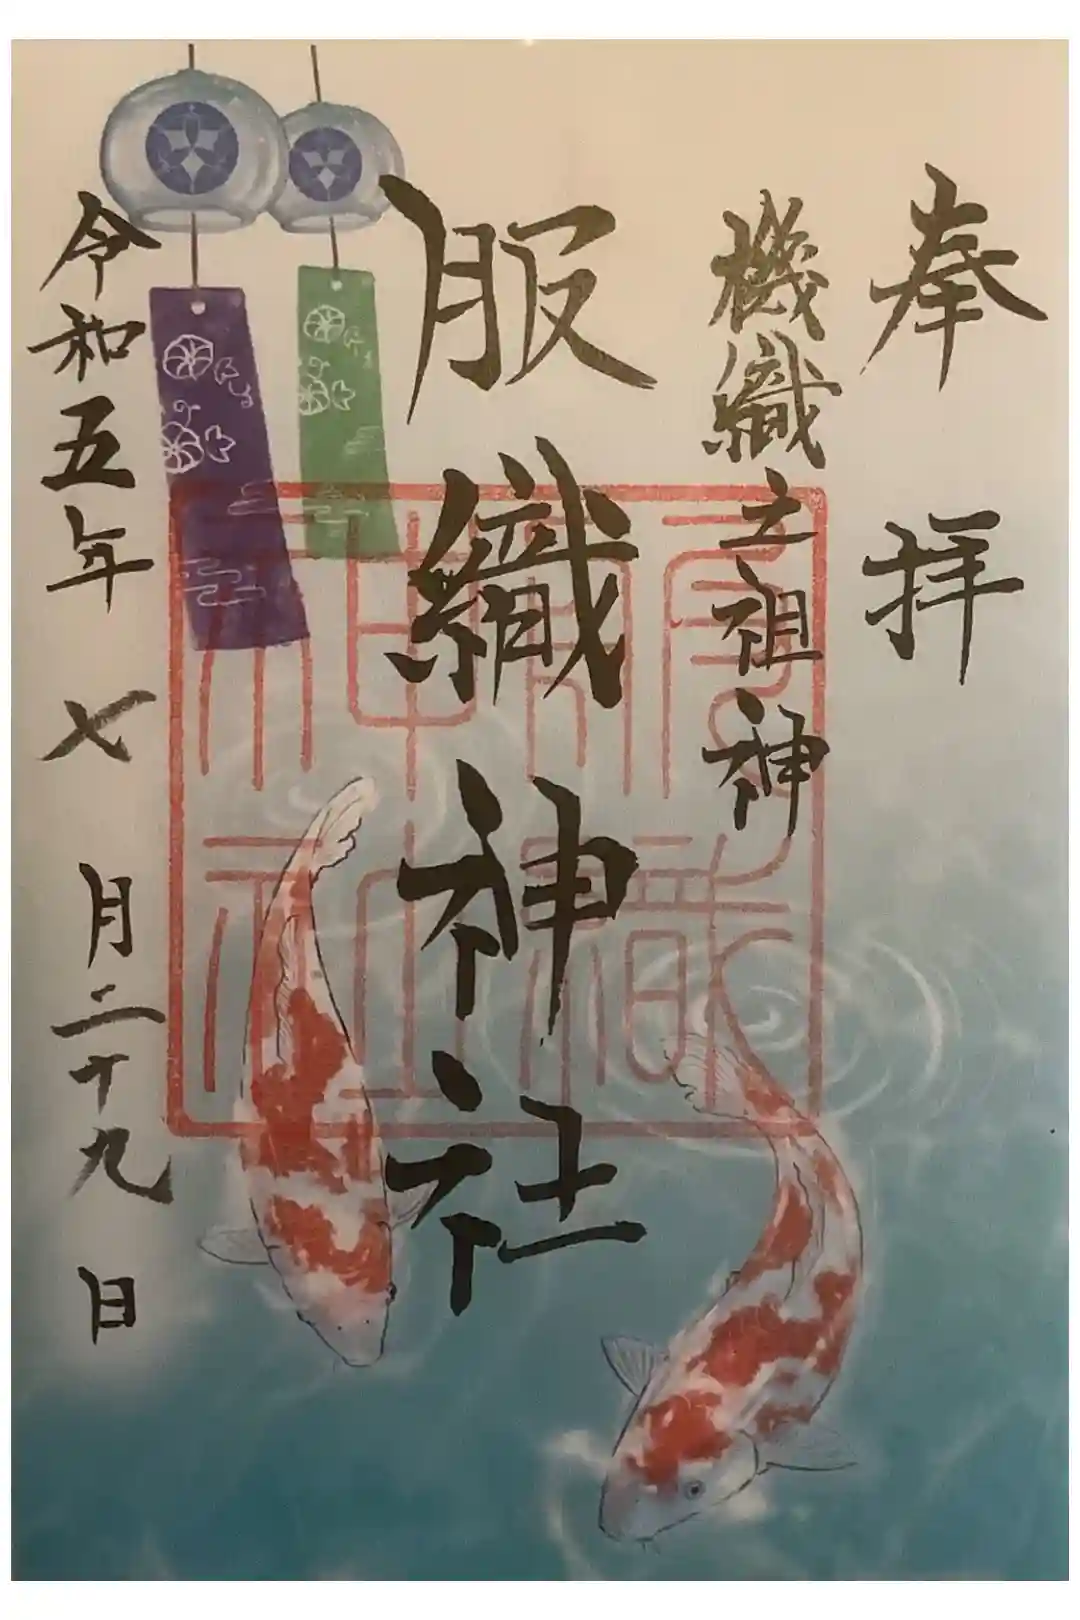 奉拝
機織之祖神
服織神社
令和五年七月二十九日
服織
神社